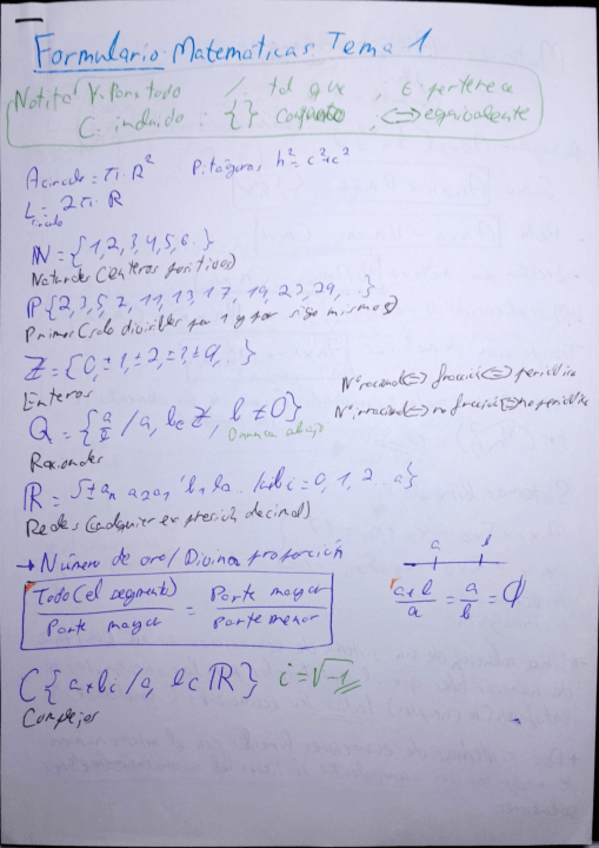 Formulario Matemáticas Tema 1
Notita ∀ Para todo / tal que, ∈ pertenece
⊂ incluido : {} conjunto, <=> equivalente
A círculo = π · R² Pitágoras h² = c² + c²
L círculo = 2π · R
N = {1,2,3,4,5,6..}
Naturales (enteros positivos)
P {2,3,5,7,11,13,17,19,23,29,...}
Primos (solo divisibles por 1 y por sigo mismos)
Z = {0, ±1, ±2, ±3 ±4,..}
Enteros
Nº racional <=> fracción <=> periódica
Nº irracional <=> no fracción <=> no periódica
Q = {a/b / a, b ∈ Z, b ≠ 0}
0 nunca abajo
Racionales
R = {± aₙ
Reales (cualquier expresión decimal)
→ Número de oro / Divina proporción
a b
Todo (el segmento) / Parte mayor = Parte mayor / Parte menor
a+b / a = a / b = Φ
C {a+bi / a, b ∈ R} i = √-1
Complejos